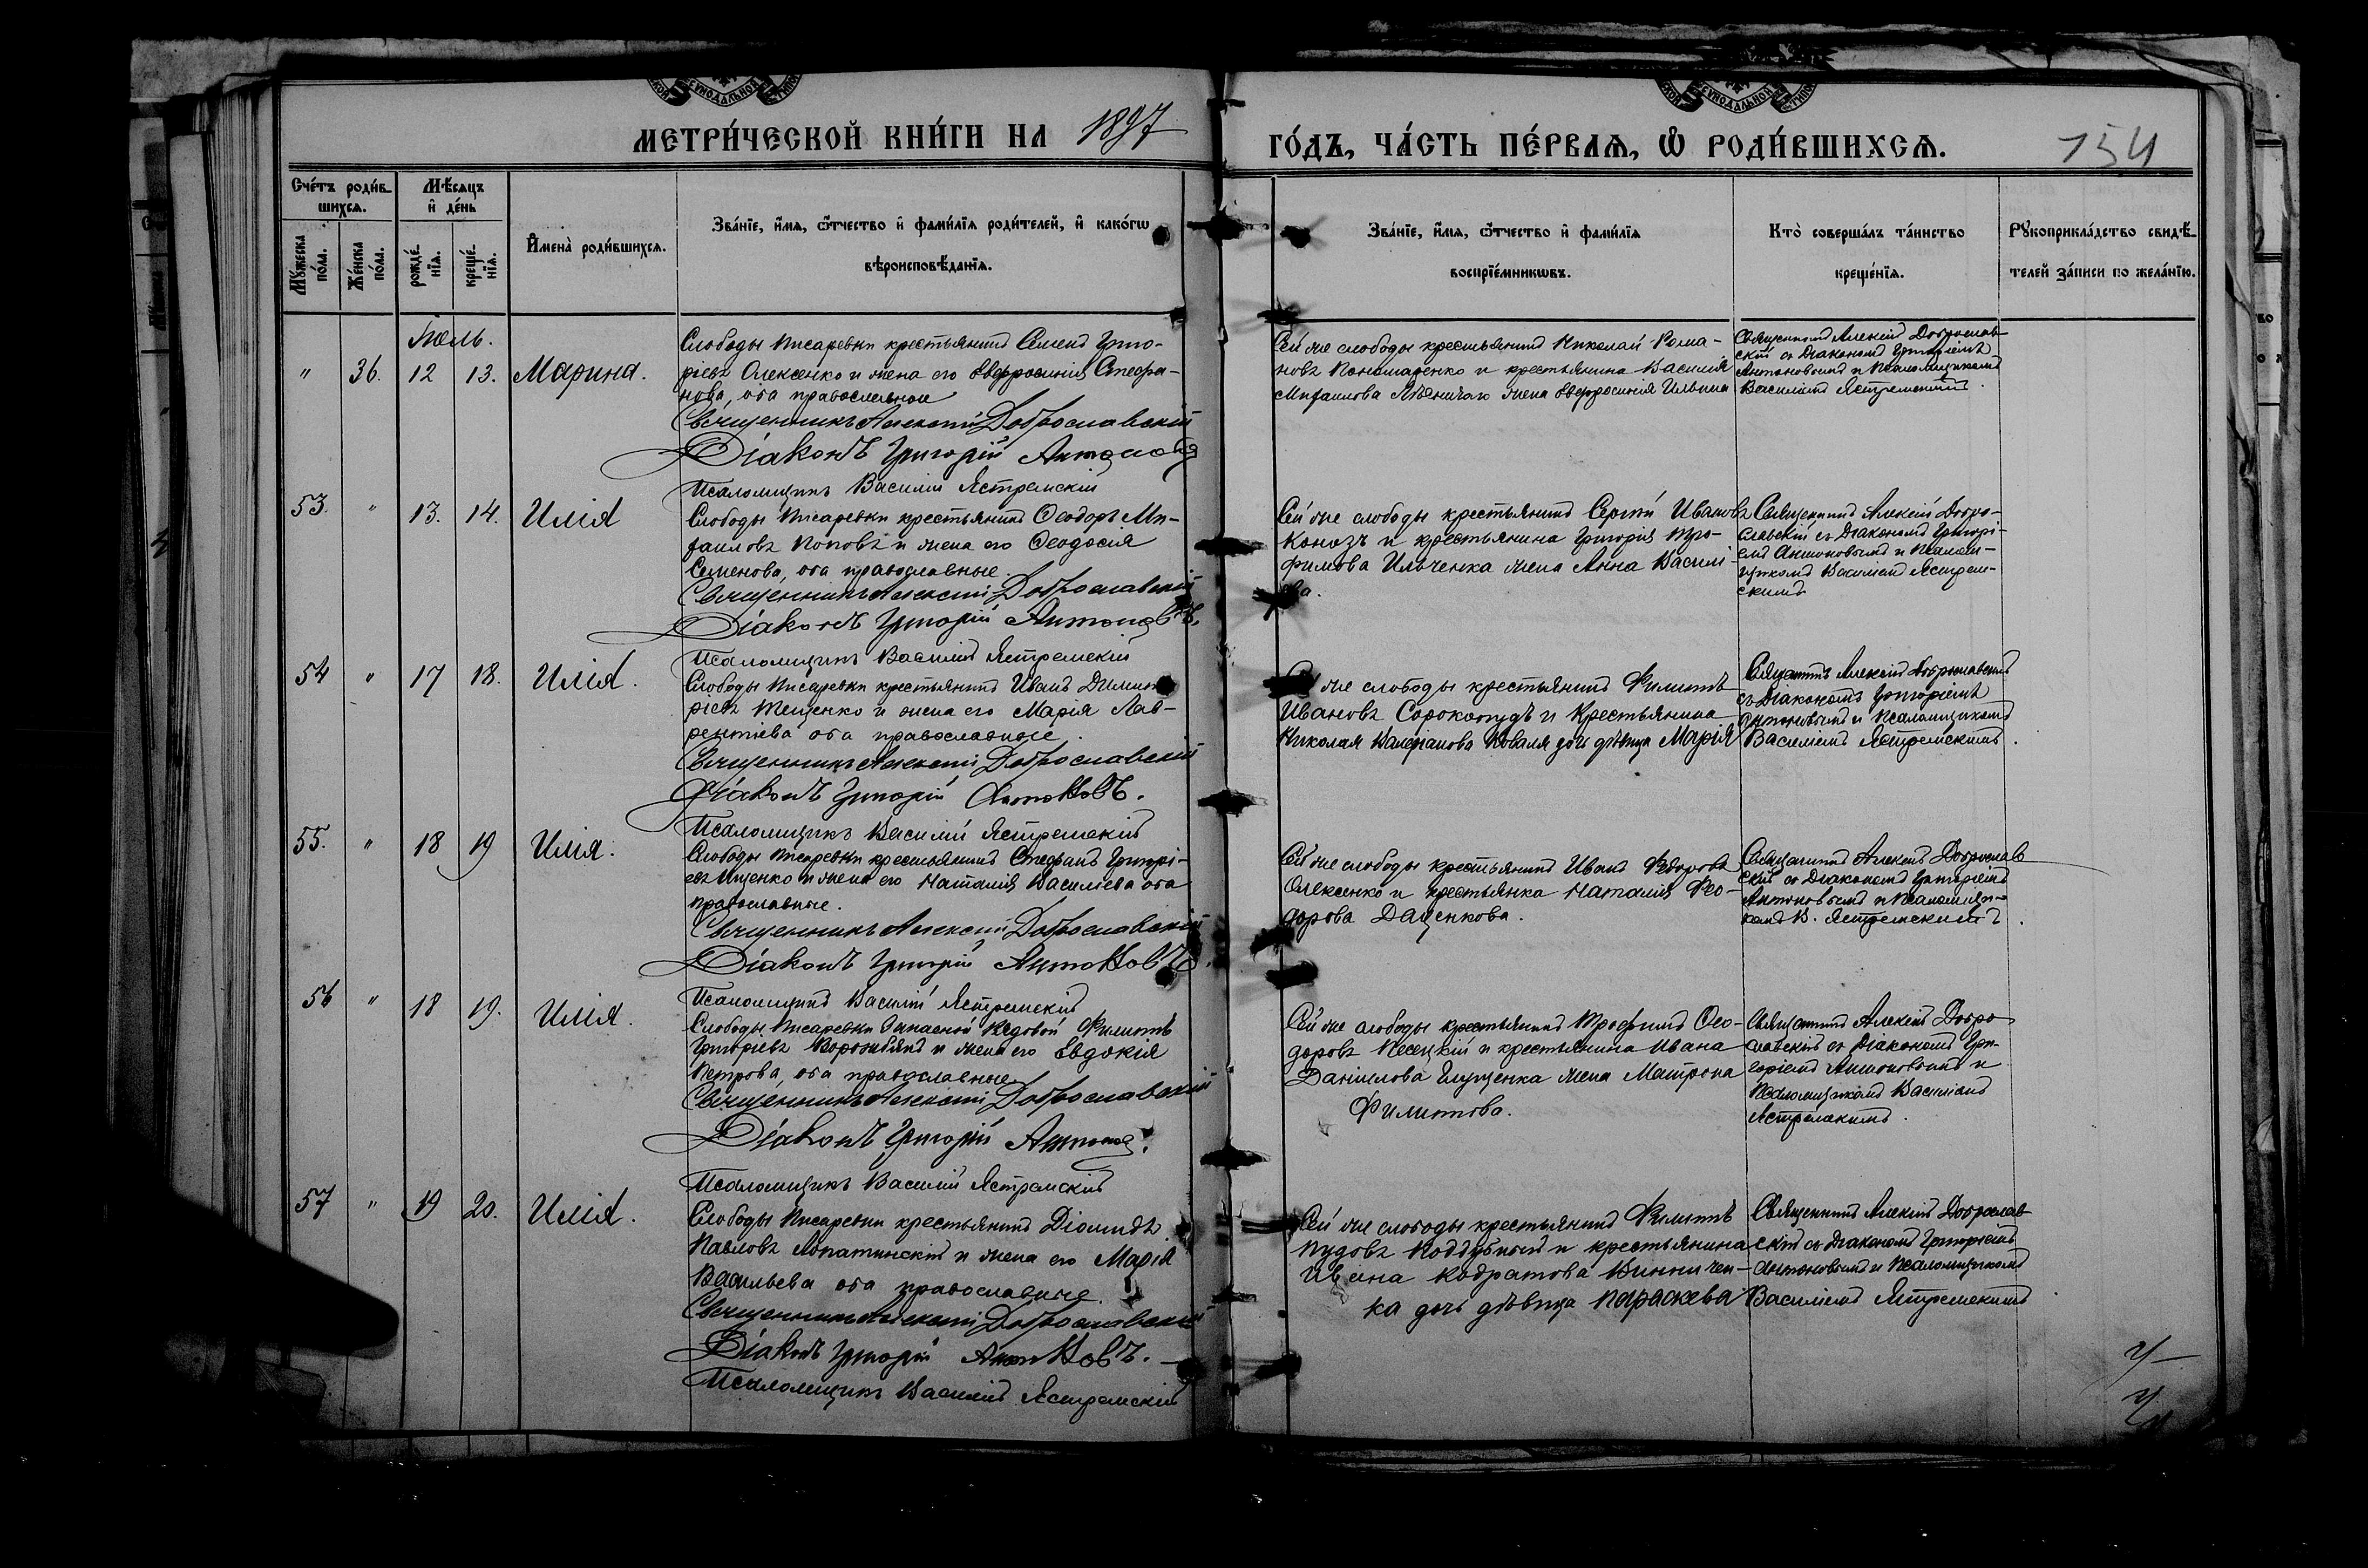 МЕТРИ́ЧЕСКОЙ КНИ́ГИ НА 1897
ГО́ДЪ, ЧА́СТЬ ПЕ́РВАЯ, Ѽ РОДИ́ВШИХСЯ.
154
Сче́тъ роди́в-
шихся.
Мѣ́сяцъ
и де́нь
Мꙋ́жеска по́ла.
Же́нска по́ла.
рожде́нїя.
креще́нїя.
Имена̀ роди́вшихся.
Зва́нїе, и́мя, ѻ҆́тчество и҆ фами́лїя роди́телей, и҆ како́гѡ
вѣроисповѣ́данїя.
Зва́нїе, и́мя, ѻ҆́тчество и҆ фами́лїя
воспрїе́мникѡвъ.
Кто̀ соверша́лъ та́инство
креще́нїя.
Рꙋкоприкла́дство свидѣ́-
телей за́писи по жела́нїю.
Іюль.
" 36. 12 13. Марина.
Слободы Писаревки крестьянинъ Семенъ Григо-
рьевъ Олексенко и жена его Евфросинія Стефа-
нова, оба православные
Священникъ Алексій Доброславскій
Діаконъ Григорій Антоновъ
Псаломщикъ Василій Ястремскій
Сей же слободы крестьянинъ Николай Рома-
новъ Пономаренко и крестьянина Василія
Михаилова жена Евфросинія Ильина
Священникъ Алексій Доброслав-
скій съ Діакономъ Григоріемъ
Антоновымъ и Псаломщикомъ
Василіемъ Ястремскимъ.
53. " 13. 14. Илія
Слободы Писаревки крестьянинъ Ѳеодоръ Ми-
хаиловъ Поповъ и жена его Ѳеодосія
Семенова, оба православные.
Священникъ Алексій Доброславскій
Діаконъ Григорій Антоновъ.
Псаломщикъ Василій Ястремскій
Сей же слободы крестьянинъ Сергій Ивановъ
Коноэъ и крестьянина Григорія Тро-
фимова Ильченка жена Анна Василі-
ева.
Священникъ Алексій Добро-
славскій съ Діакономъ Григорі-
емъ Антоновымъ и Псалом-
щикомъ Василіемъ Ястрем-
скимъ
54 " 17 18. Илія.
Слободы Писаревки крестьянинъ Иванъ Димит-
рьевъ Тещенко и жена его Марія Лав-
рентіева оба православные.
Священникъ Алексій Доброславскій
Діаконъ Григорій Антоновъ.
Псаломщикъ Василій Ястремскій
Сей же слободы крестьянинъ Филиппъ
Ивановъ Сорокопудъ и крестьянина
Николая Валеріанова Коваля дочь дѣвица Марія
Священникъ Алексій Доброславскій
съ Діакономъ Григоріемъ
Антоновымъ и Псаломщикомъ
Василіемъ Ястремскимъ.
55. " 18 19 Илія.
Слободы Писаревки крестьянинъ Стефанъ Григорі-
евъ Ищенко и жена его Наталія Василіева оба
православные.
Священникъ Алексій Доброславскій
Діаконъ Григорій Антоновъ.
Псаломщикъ Василій Ястремскій
Сей же слободы крестьянинъ Иванъ Федорова
Олексенко и крестьянка Наталія Фео-
дорова Даценкова.
Священникъ Алексій Доброслав
скій съ Діакономъ Григоріемъ
Антоновымъ и Псаломщи-
комъ В. Ястремскимъ.
56 " 18 19. Илія.
Слободы Писаревки Запасной Рядовой Филиппъ
Григорьевъ Ворожбянъ и жена его Евдокія
Петрова, оба православные
Священникъ Алексій Доброславскій
Діаконъ Григорій Антоновъ.
Псаломщикъ Василій Ястремскій
Сей же слободы крестьянинъ Трофимъ Ѳео-
доровъ Песецкій и крестьянина Ивана
Даніилова Глущенка жена Матрона
Филиппова.
Священникъ Алексій Добро
славскій съ Діакономъ Гри-
горіемъ Антоновымъ и
Псаломщикомъ Василіемъ
Ястремскимъ.
57 " 19 20. Илія.
Слободы Писаревки крестьянинъ Діомидъ
Павловъ Лопатинскій и жена его Марія
Васильева оба православные.
Священникъ Алексій Доброславскій
Діаконъ Григорій Антоновъ.
Псаломщикъ Василій Ястремскій
Сей же слободы крестьянинъ Филиппъ
Пудовъ Поддубный и крестьянина
Ивана Кодратова Винничен-
ка дочь дѣвица Параскева
Священникъ Алексій Доброслав
скій съ Діакономъ Григоріемъ
Антоновымъ и Псаломщикомъ
Василіемъ Ястремскимъ